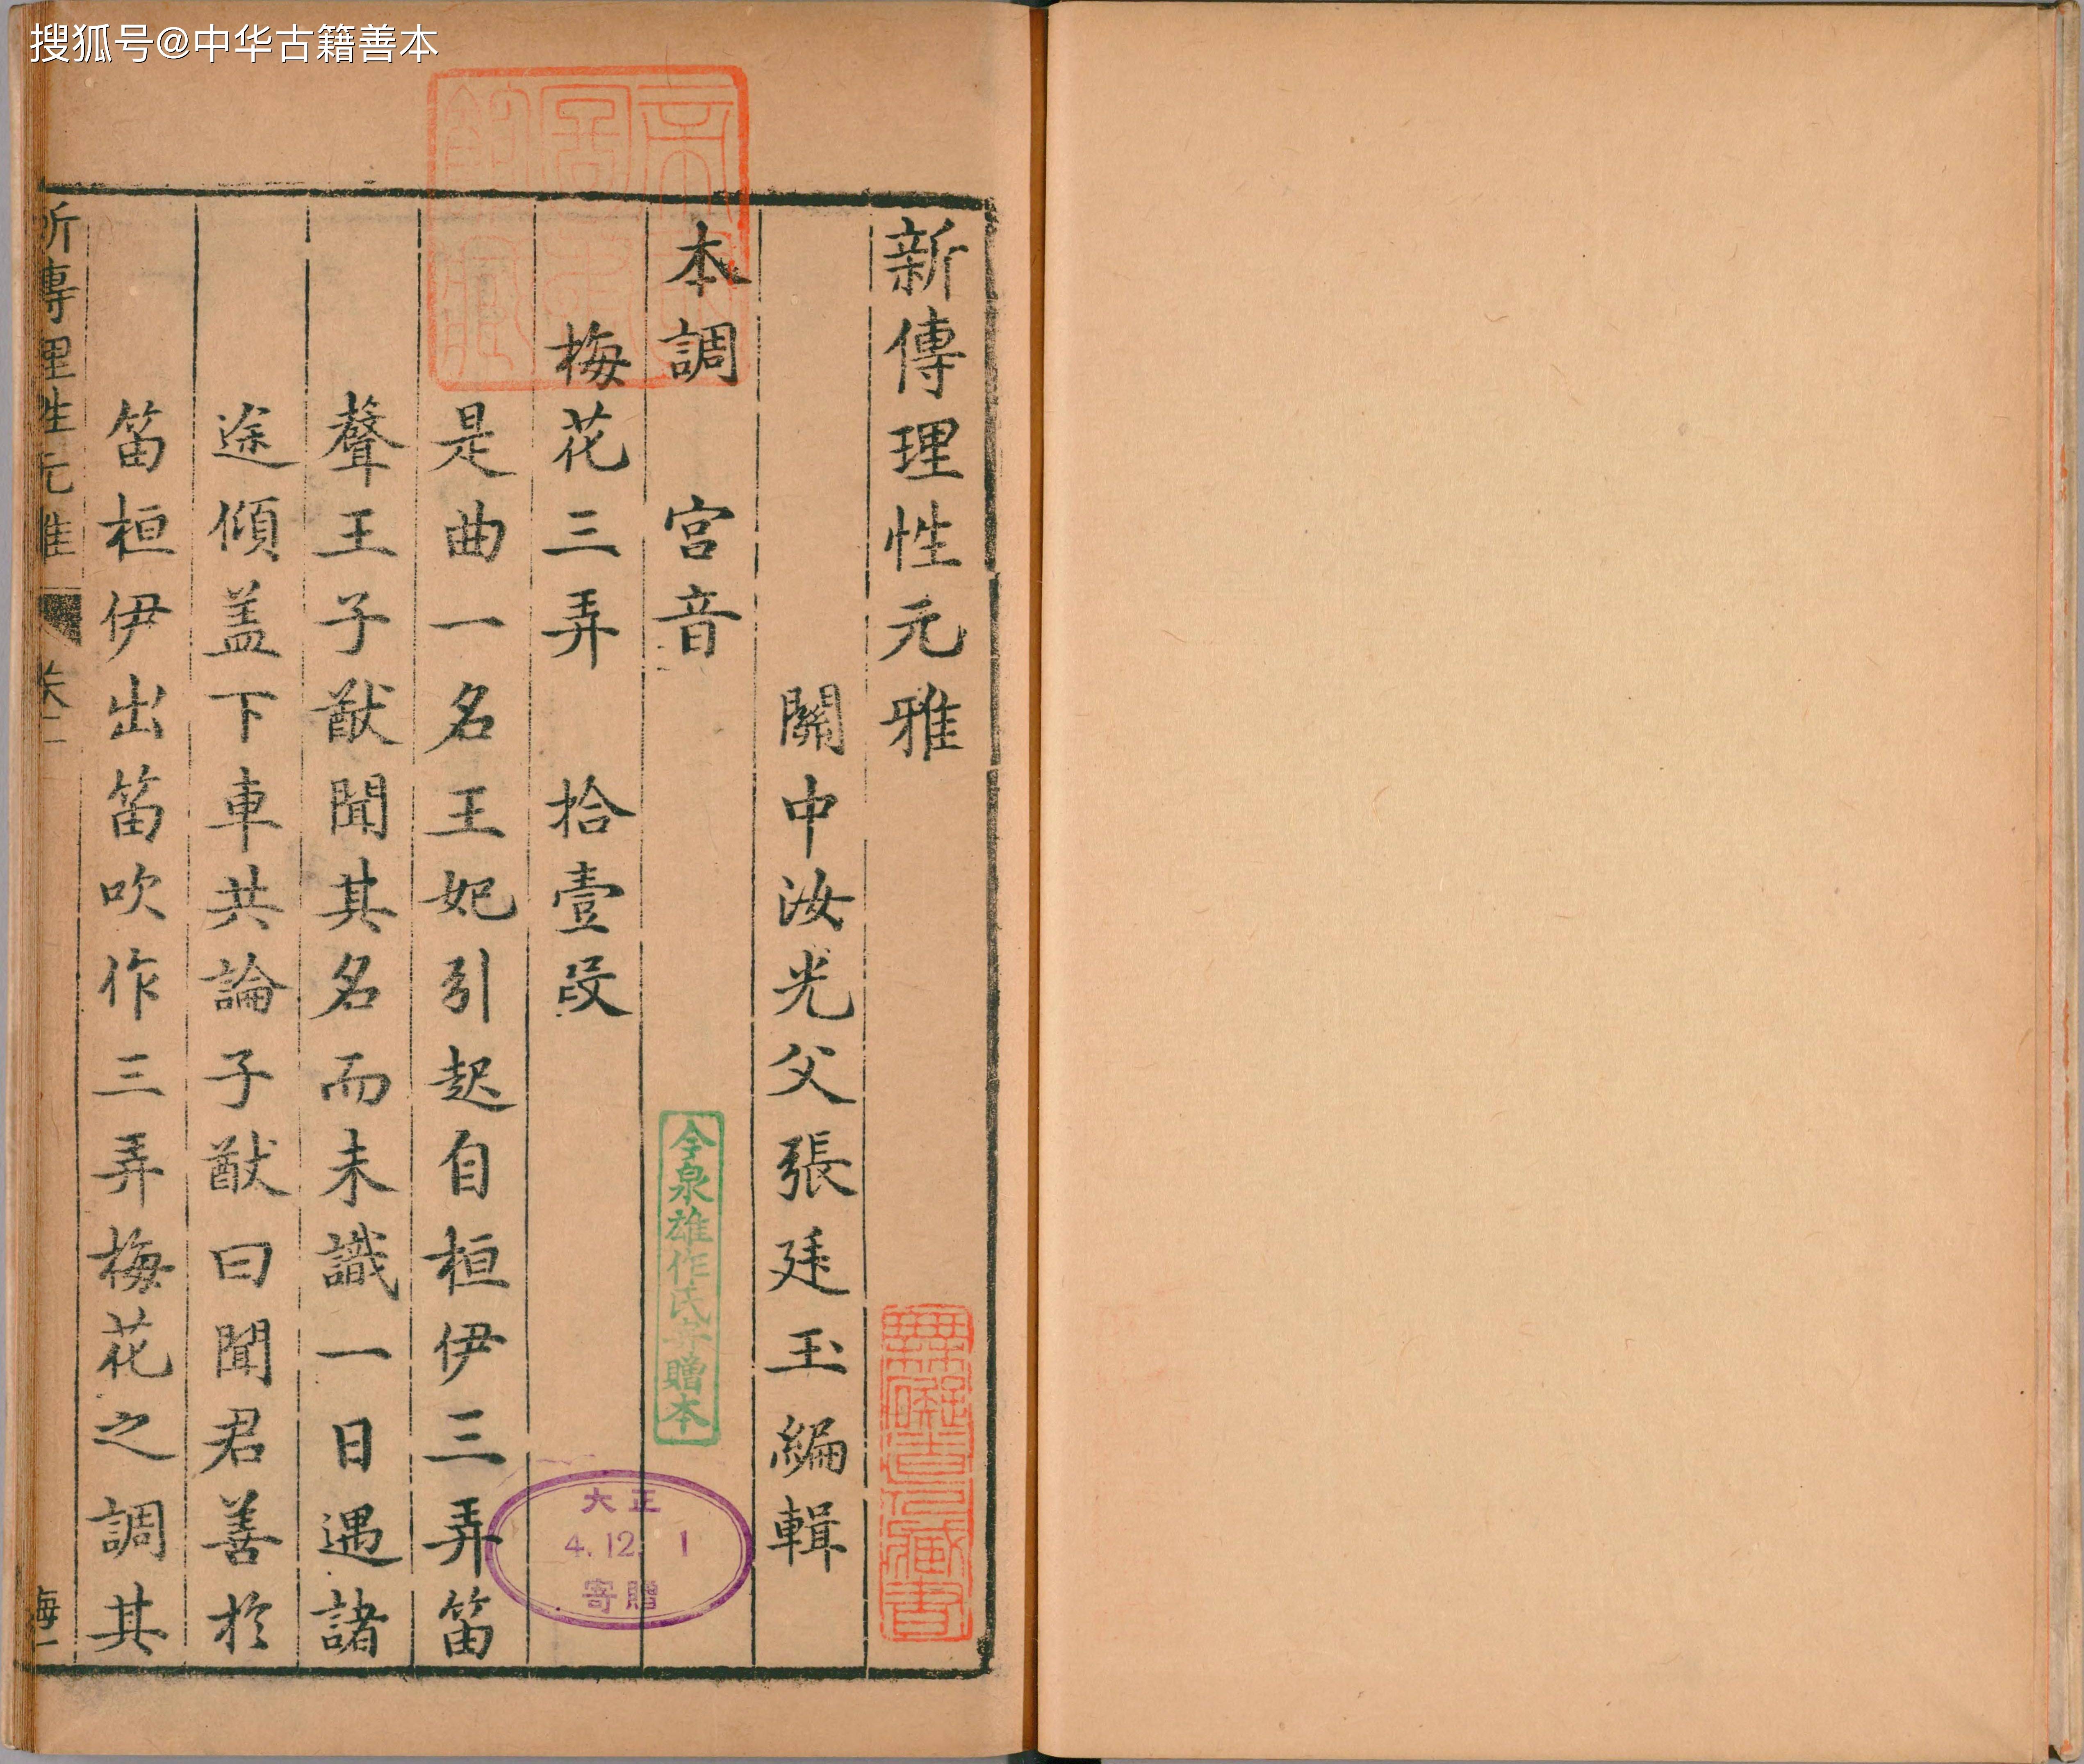 搜狐号@中华古籍善本
新傳理性元雅
關中汝光父張廷玉編輯
本調 宮音
梅花三弄 拾壹段
是曲一名王妃引起自桓伊三弄笛
聲王子猷聞其名而未識一日遇諸
途傾盖下車共論子猷曰聞君善於
笛桓伊出笛吹作三弄梅花之調其
新傳理性元雅 卷二 梅一
今泉雄作氏寄贈本
大正
4.12.1
寄贈